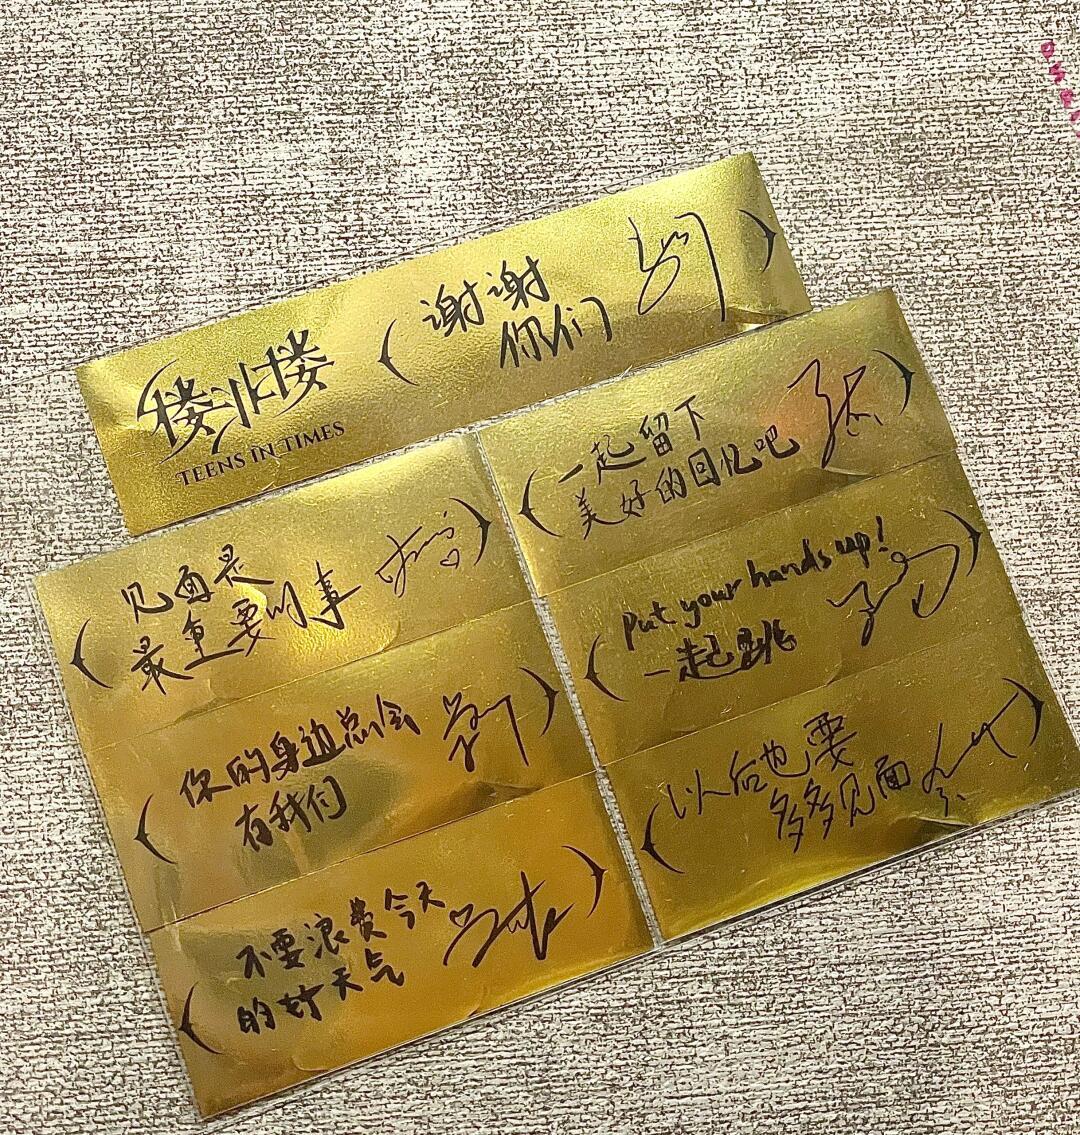 楼外楼
TEENS IN TIMES
谢谢
你们
见面是
最重要的事
你的身边总会
有我们
不要浪费今天
的好天气
一起留下
美好的回忆吧
Put your hands up!
一起跳
以后也要
多多见面